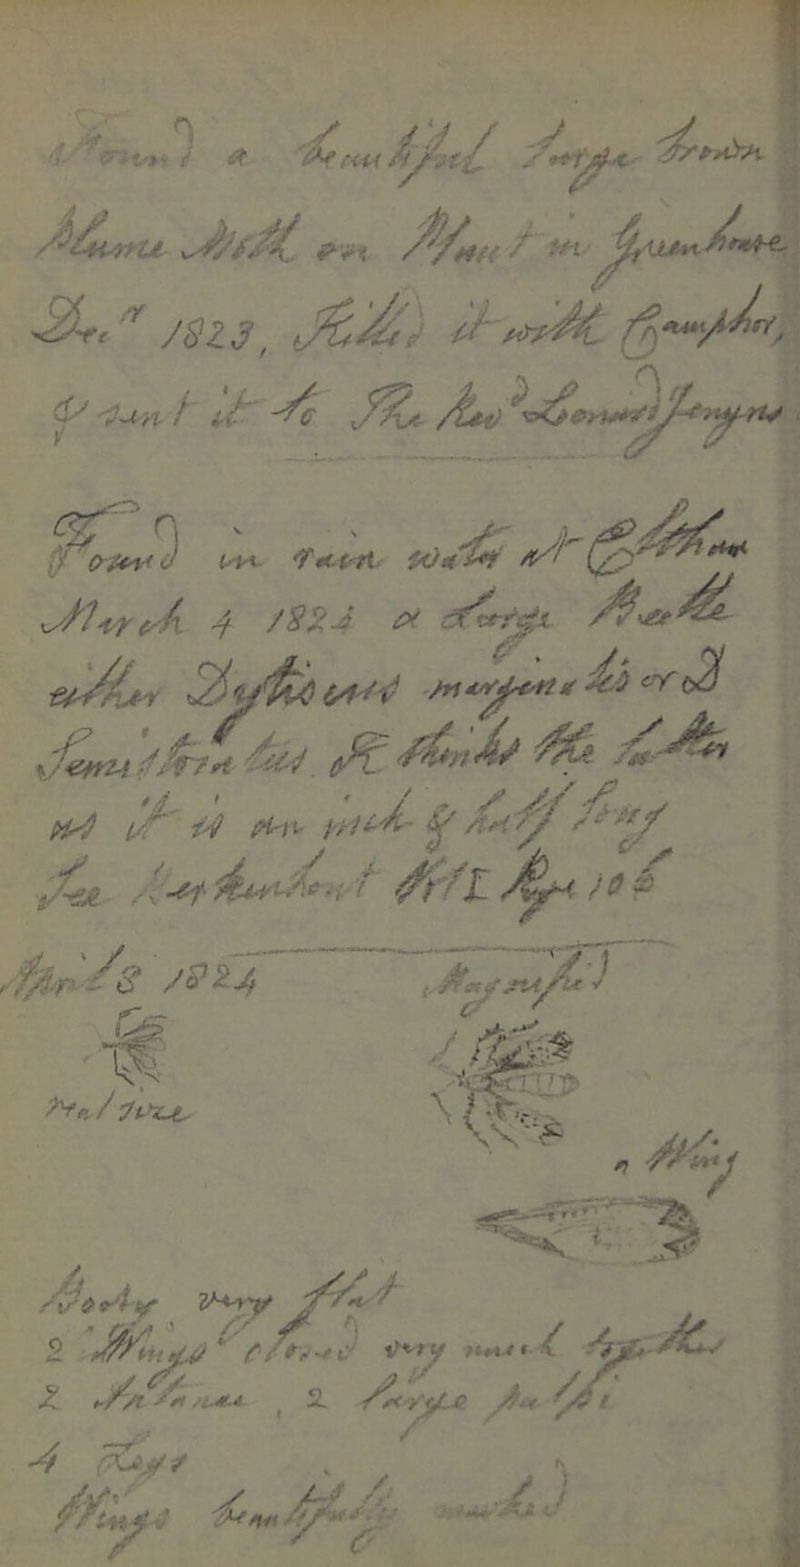 Found a beautiful large brown
Plume Moth on Plant in Greenhouse
Decr 1823, Killed it with Camphor,
& sent it to The Revd Leonard Jenyns
Found in rain water at
March 4 1824 a large Beetle
either Dytiscus marginalis or D
Semistriatus. I think the latter
as it is an inch & half long
See Vol I Page 106
April 8 1824 Magnified
Nat size
a Wing
Body very flat
2 Wings closed very much together
2 Antennae, 2 large palpi
4 Legs
Wings beautifully marked